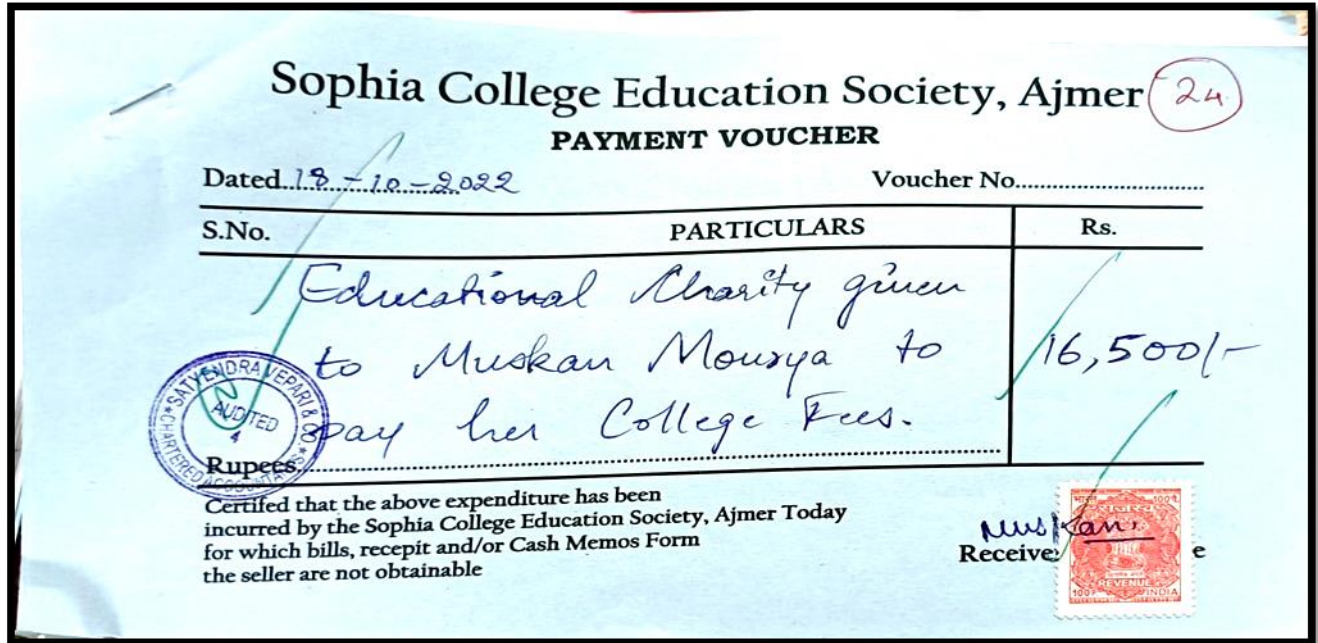 Sophia College Education Society, Ajmer 24
PAYMENT VOUCHER
Dated 18-10-2022 Voucher No.
S.No. PARTICULARS Rs.
Educational Charity given
to Muskan Mourya to 16,500/-
pay her College Fees.
SATYENDRA VEPARI & CO.
CHARTERED ACCOUNTANTS
AUDITED
4
Rupees
Certifed that the above expenditure has been
incurred by the Sophia College Education Society, Ajmer Today
for which bills, recepit and/or Cash Memos Form
the seller are not obtainable
Muskan
Receive e
भारत 100प
राजस्व
REVENUE
100P INDIA